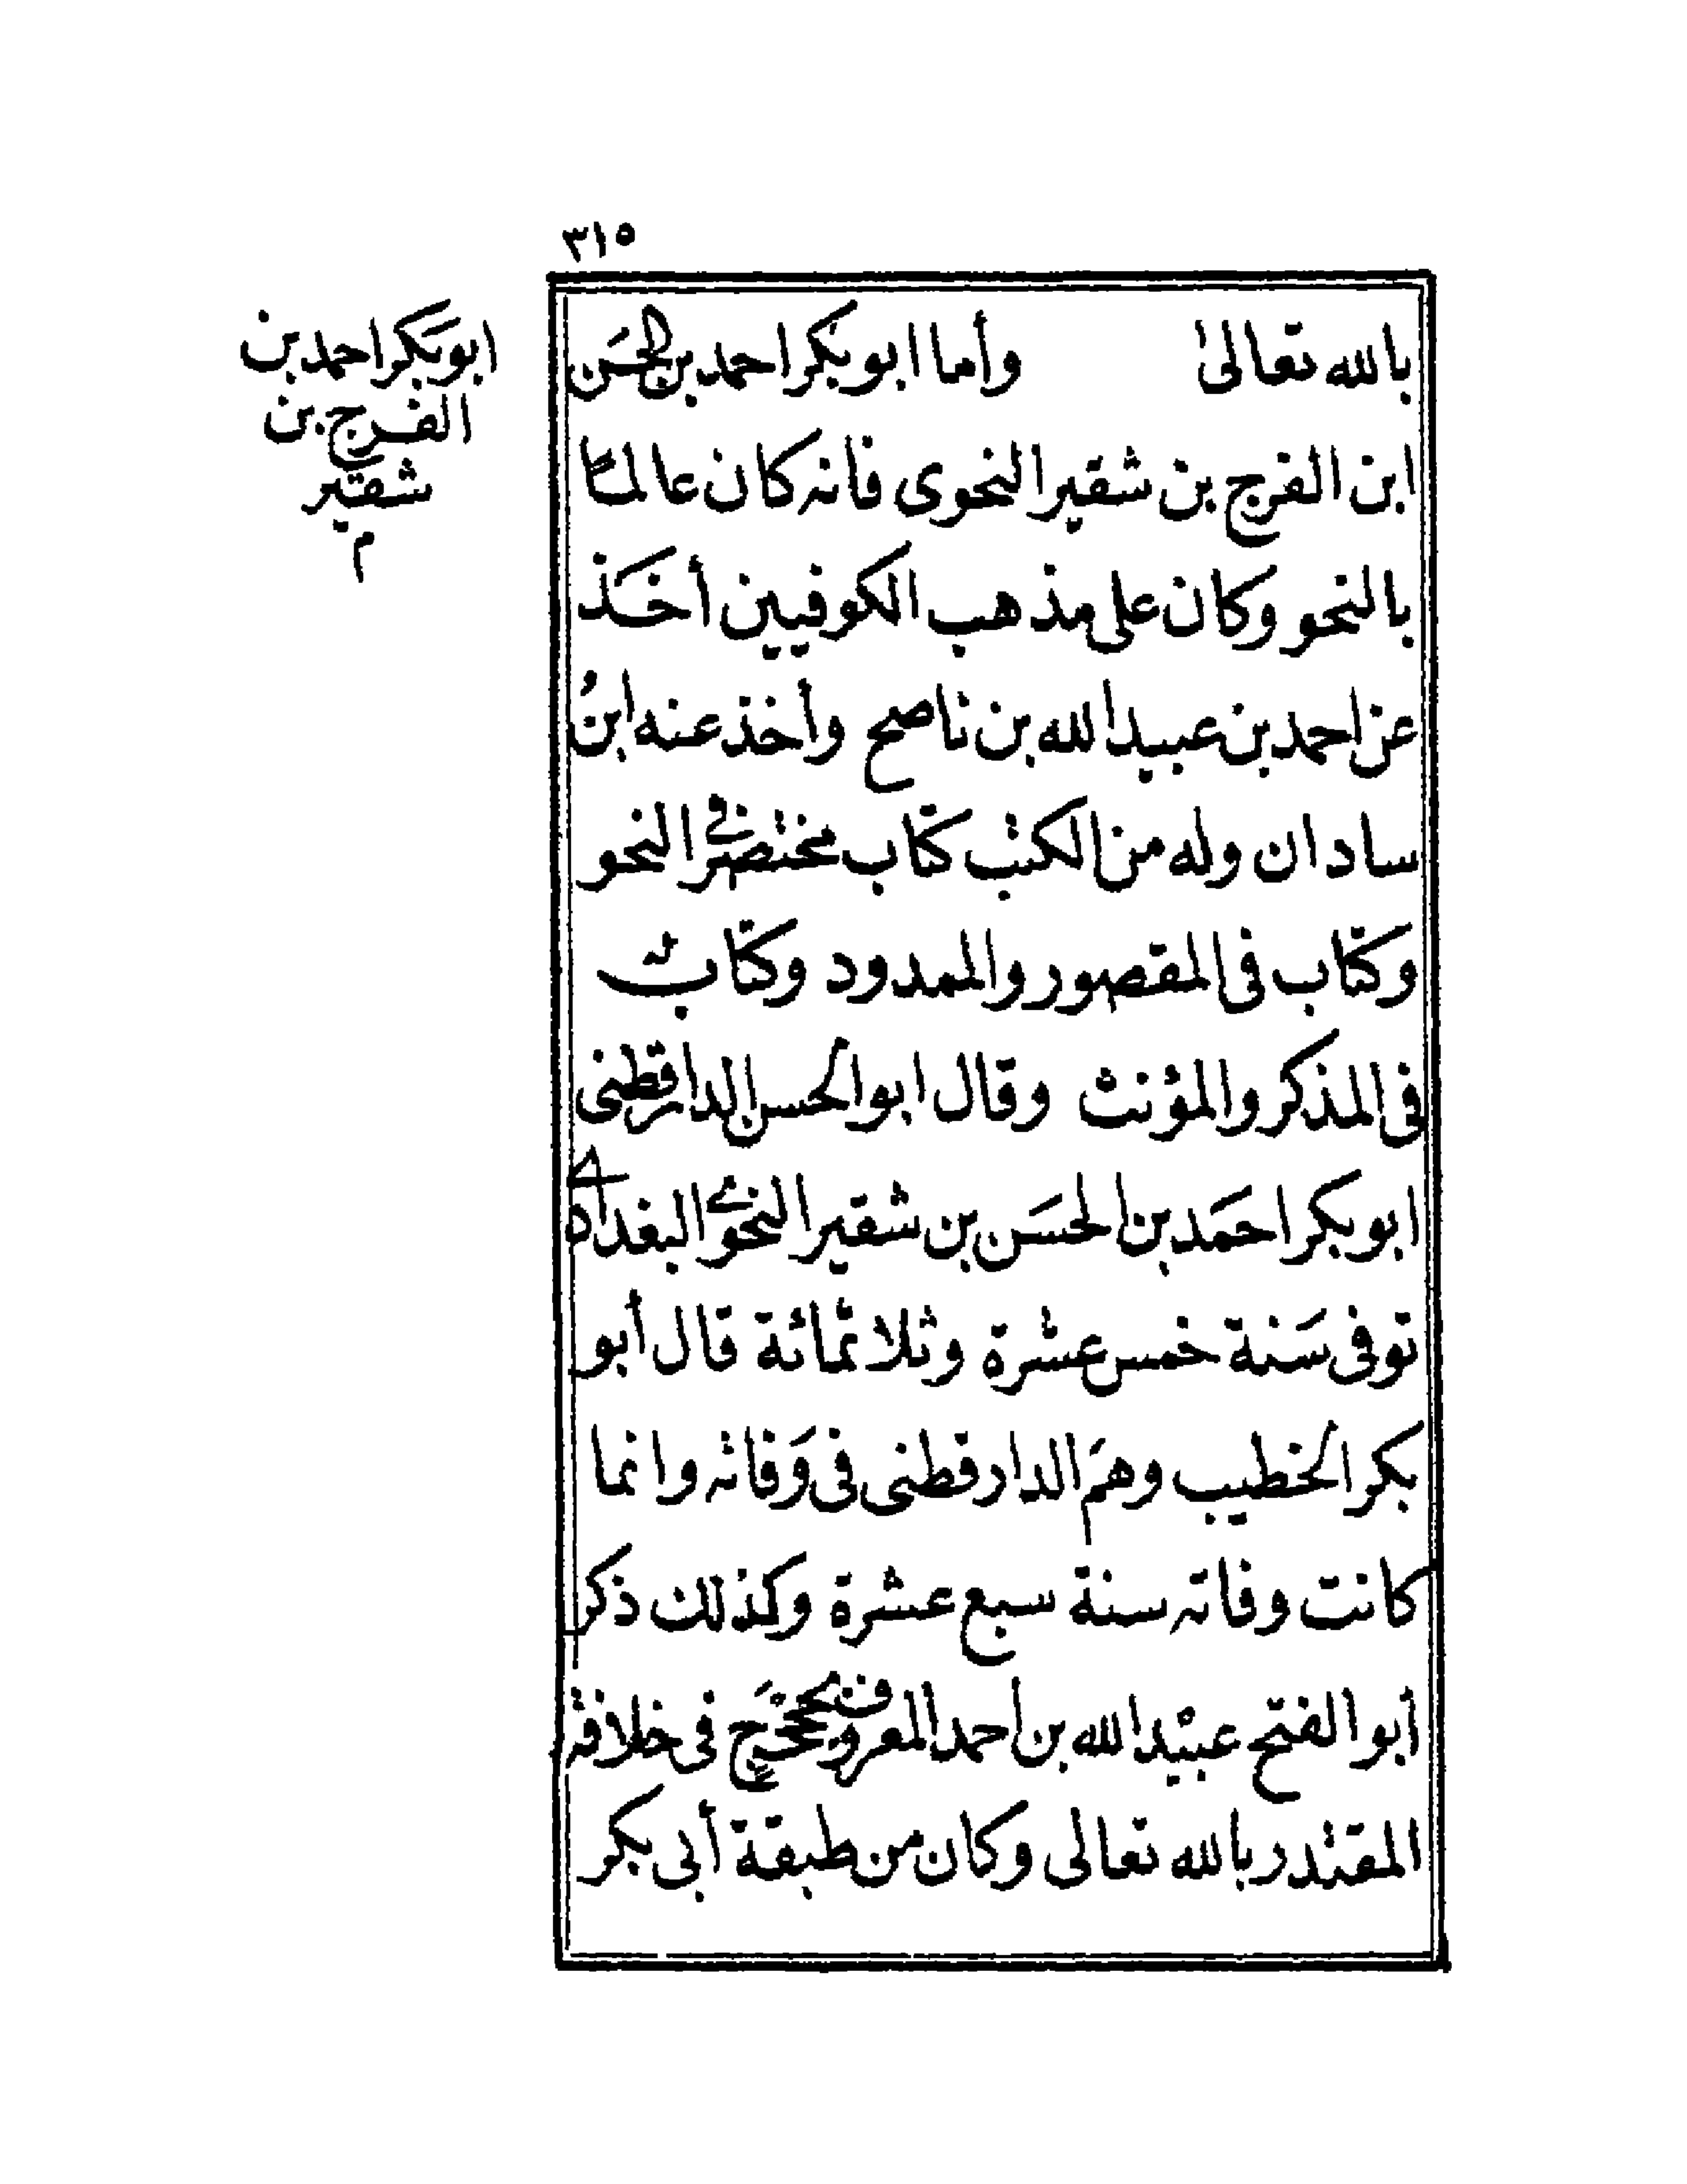 ٣١٥
بالله تعالى وأما ابو بكر احمد بن الحسَن
ابن الفرج بن شقير النحوى فانه كان عالمًا
بالنحو وكان على مذهب الكوفيين أخَذ
عن احمد بن عبيد الله بن ناصح وأخذ عنه ابنُ
سادان وله من الكتب كتاب مختصر فى النحو
وكتاب فى المقصور والممدود وكتاب
فى المذكر والمؤنث وقال ابو الحسن الدارقطنى
ابو بكر احمَد بن الحسَن بن شقير النحوى البغدادى
توفى سَنة خمس عشرة وثلاثمائة قال أبو
بكر الخطيب وهمَ الدارقطنى فى وَفاته وانما
كانت وفاته سنة سبع عشرة وكذلك ذكر
أبو الفتح عبيْد الله بن أحمد المعروف بجخجَخ فى خلافة
المقتدر بالله تعالى وكان من طبقة أبى بكر
ابو بَكر احمد بن
الفرج بن
شقَير
م